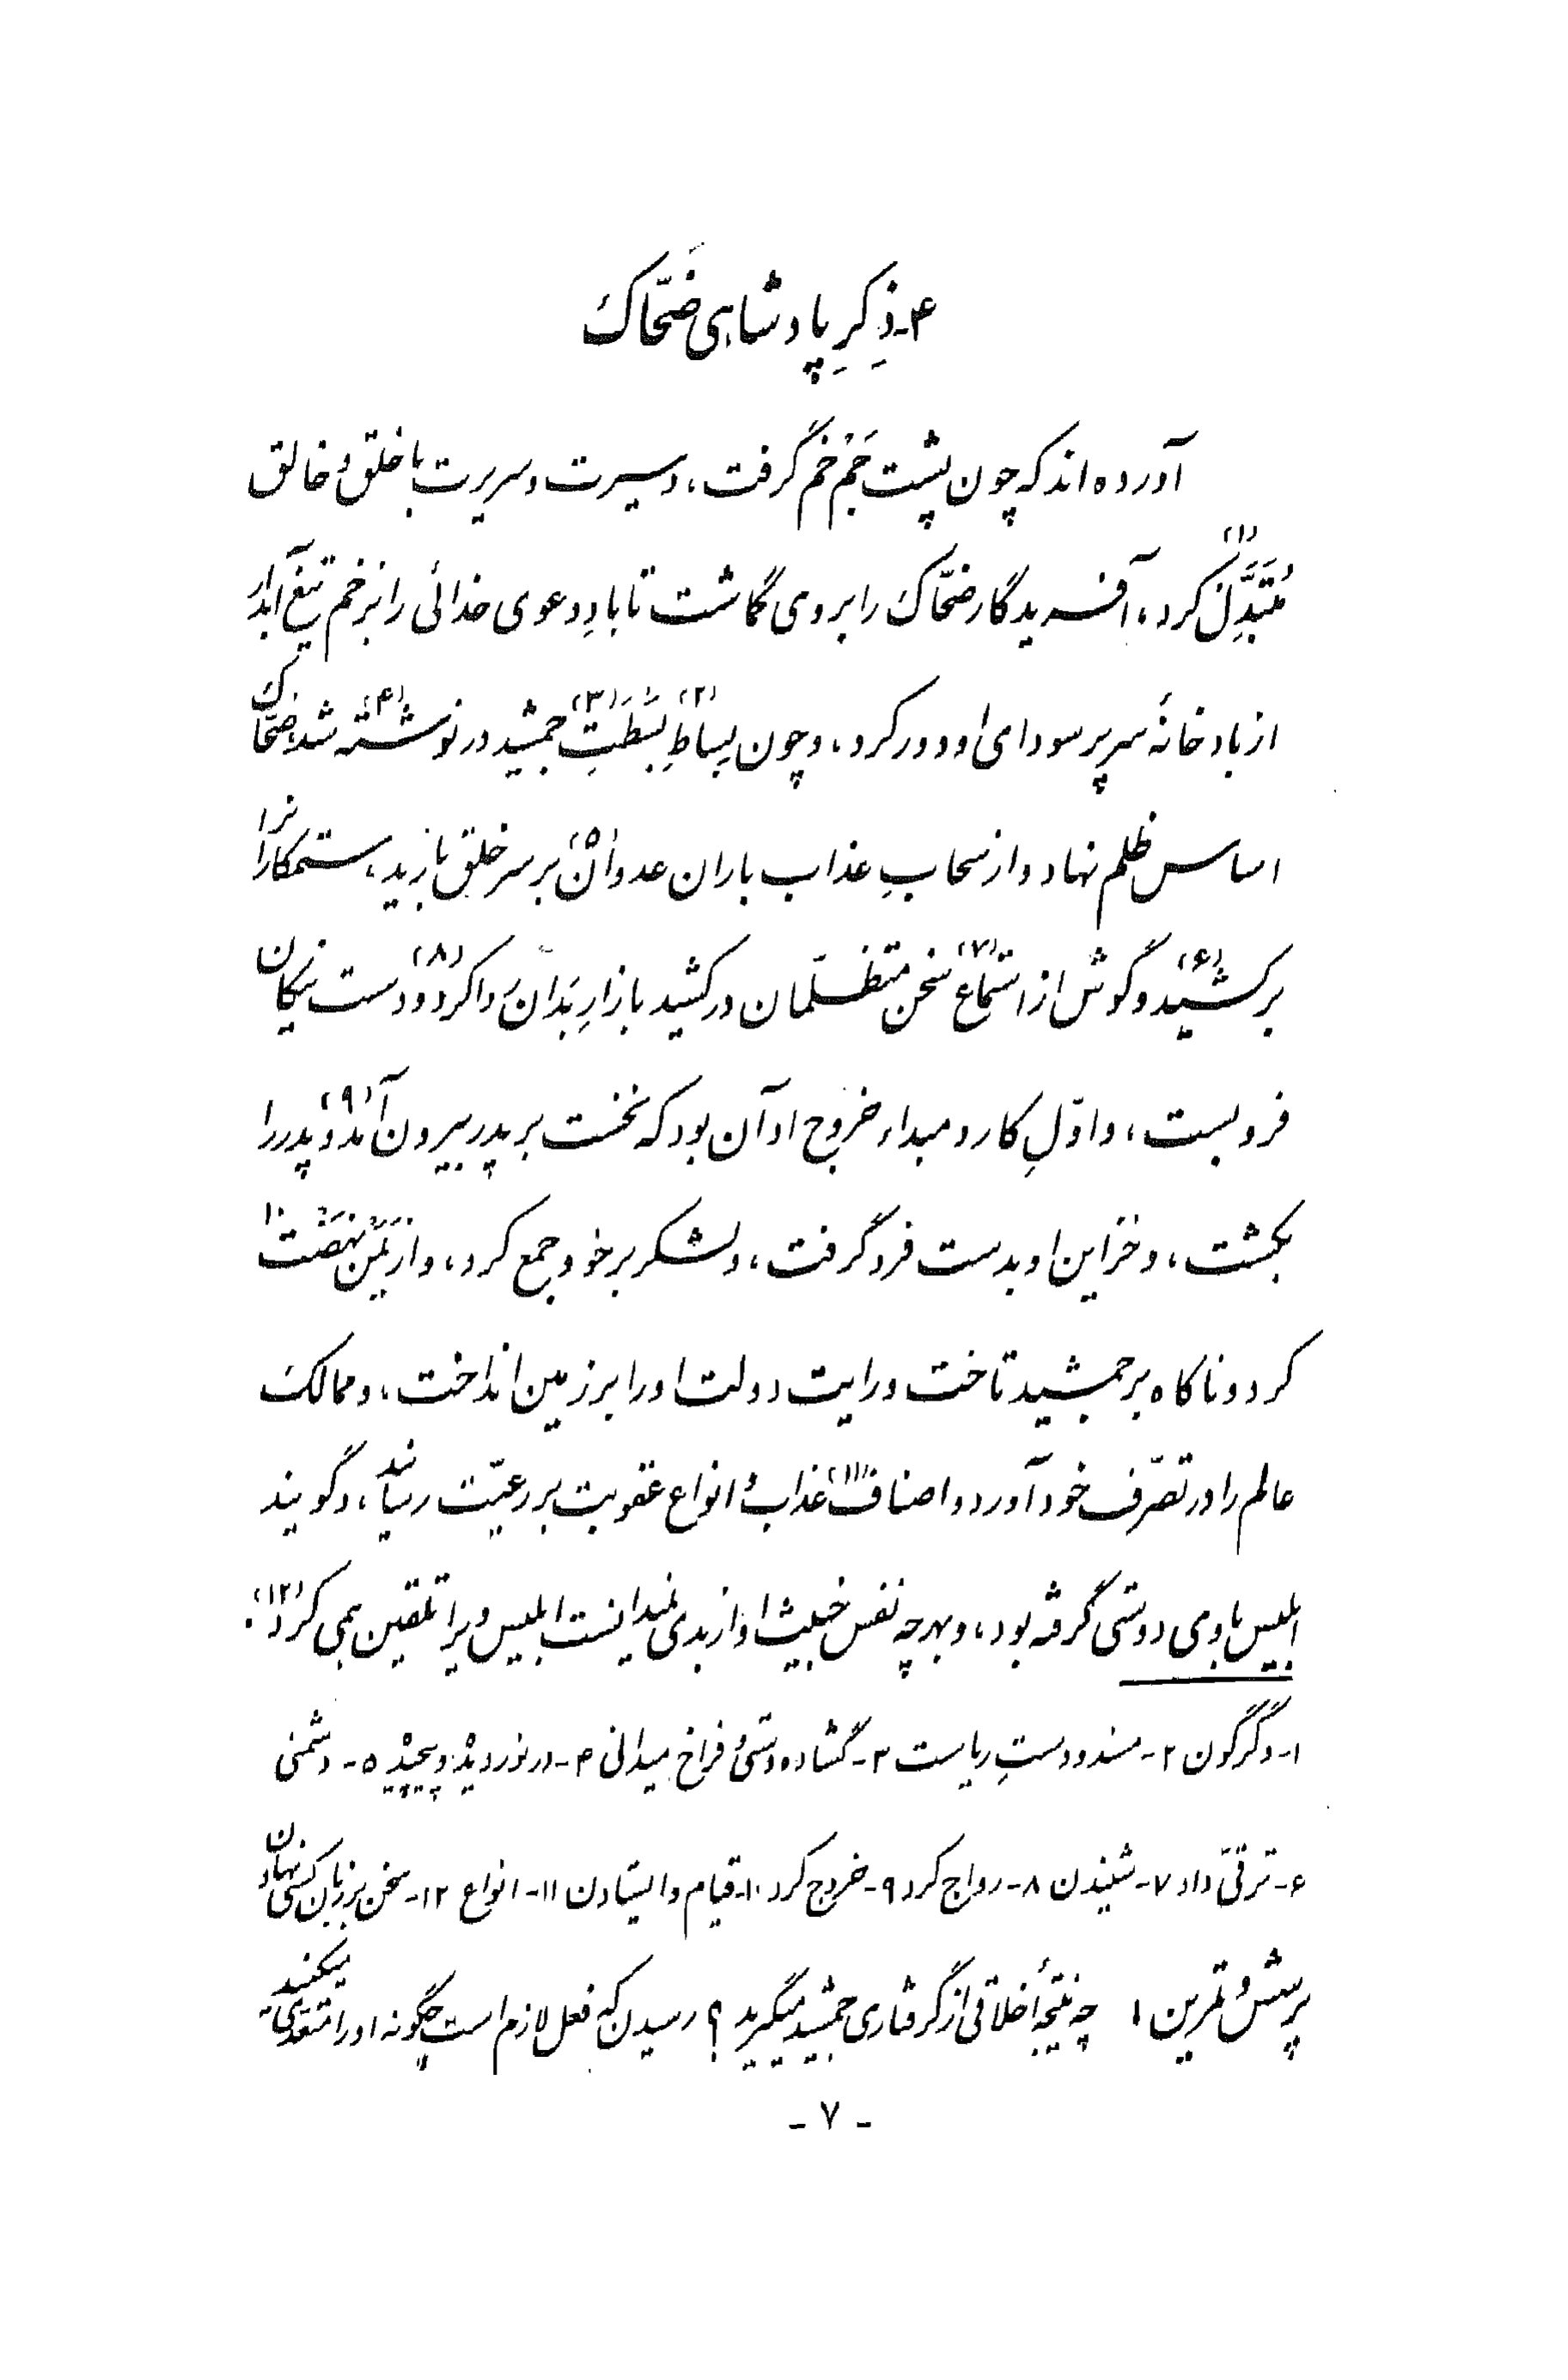 ۴- ذِکرِ پادشاهی ضَحّاک
آورده‌اند که چون پشت جَم خم گرفت، و سیرت و سریرت با خلق و خالق
مُتَبَدِّل(۱) کرد، آفریدگار ضحّاک را بر وی گماشت تا بادِ دعوی خدائی را بزخم تیغ آبدار
از بادخانهٔ سر پر سودای او دور کرد، و چون بِساطِ(۲) بَسْطَتِ(۳) جمشید در نوشته(۴) شد، ضحّاک
اساس ظلم نهاد و از سحابِ عذاب باران عدوان(۵) بر سر خلق بارید، ستمکارانرا
برکشید(۶) و گوش از استماع(۷) سخن متظلّمان درکشید بازارِ بَدان روا کرد(۸) و دست نیکان
فرو بست، و اوّلِ کار و مبداء خروج او آن بود که نخست بر پدر بیرون آمد(۹) و پدر را
بکشت، و خزاین او بدست فرو گرفت، و لشکر بر خود جمع کرد، و از یَمَن نَهضَت۱۰
کرد و ناگاه بر جمشید تاخت و رایت دولت او را بر زمین انداخت، و ممالک
عالم را در تصرّف خود آورد و اصناف(۱۱) عذاب و انواع عقوبت بر رعیّت رسانید، و گویند
ابلیس با وی دوستی گرفته بود، و بهرچه نفس خبیث او از بدی نمیدانست ابلیس ویرا تلقین همی کرد(۱۲).
۱- دگرگون ۲- مسند و دستِ ریاست ۳- گشاده‌دستی و فراخ میدانی ۴- در نوردید و پیچید ۵- دشمنی
۶- ترقّی داد ۷- شنیدن ۸- رواج کرد ۹- خروج کرد ۱۰- قیام و ایستادن ۱۱- انواع ۱۲- سخن بر زبان کسی نهادن
پرسش و تمرین، چه نتیجهٔ اخلاقی از گرفتاری جمشید میگیرید؟ رسیدن که فعل لازم است چگونه او را متعدّی میکنید
- ۷ -